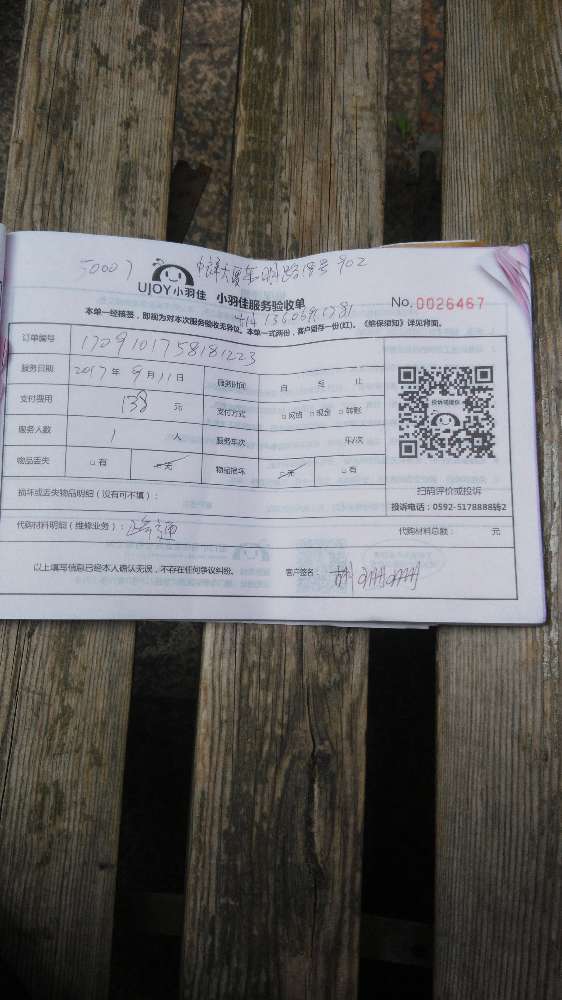 50007
UJOY小羽佳 小羽佳服务验收单 No. 0026467
本单一经接签,即视为对本次服务验收无异议。本单一式两份,客户留存一份(红)。《维保须知》详见背面。
订单编号 1709101758181223
服务日期 2017年9月11日 服务时间 自 至 止
支付费用 138 元 支付方式 □网络 □现金 □转账
服务人数 1 人 服务车次 车/次
物品丢失 □有 □无 物品损坏 □无 □有
投诉或提议
扫码评价或投诉
投诉电话:0592-5178888转2
损坏或丢失物品明细(没有可不填):
代购材料明细(维修业务): 代购材料总额: 元
以上填写信息已经本人确认无误,不存在任何争议纠纷。 客户签名: